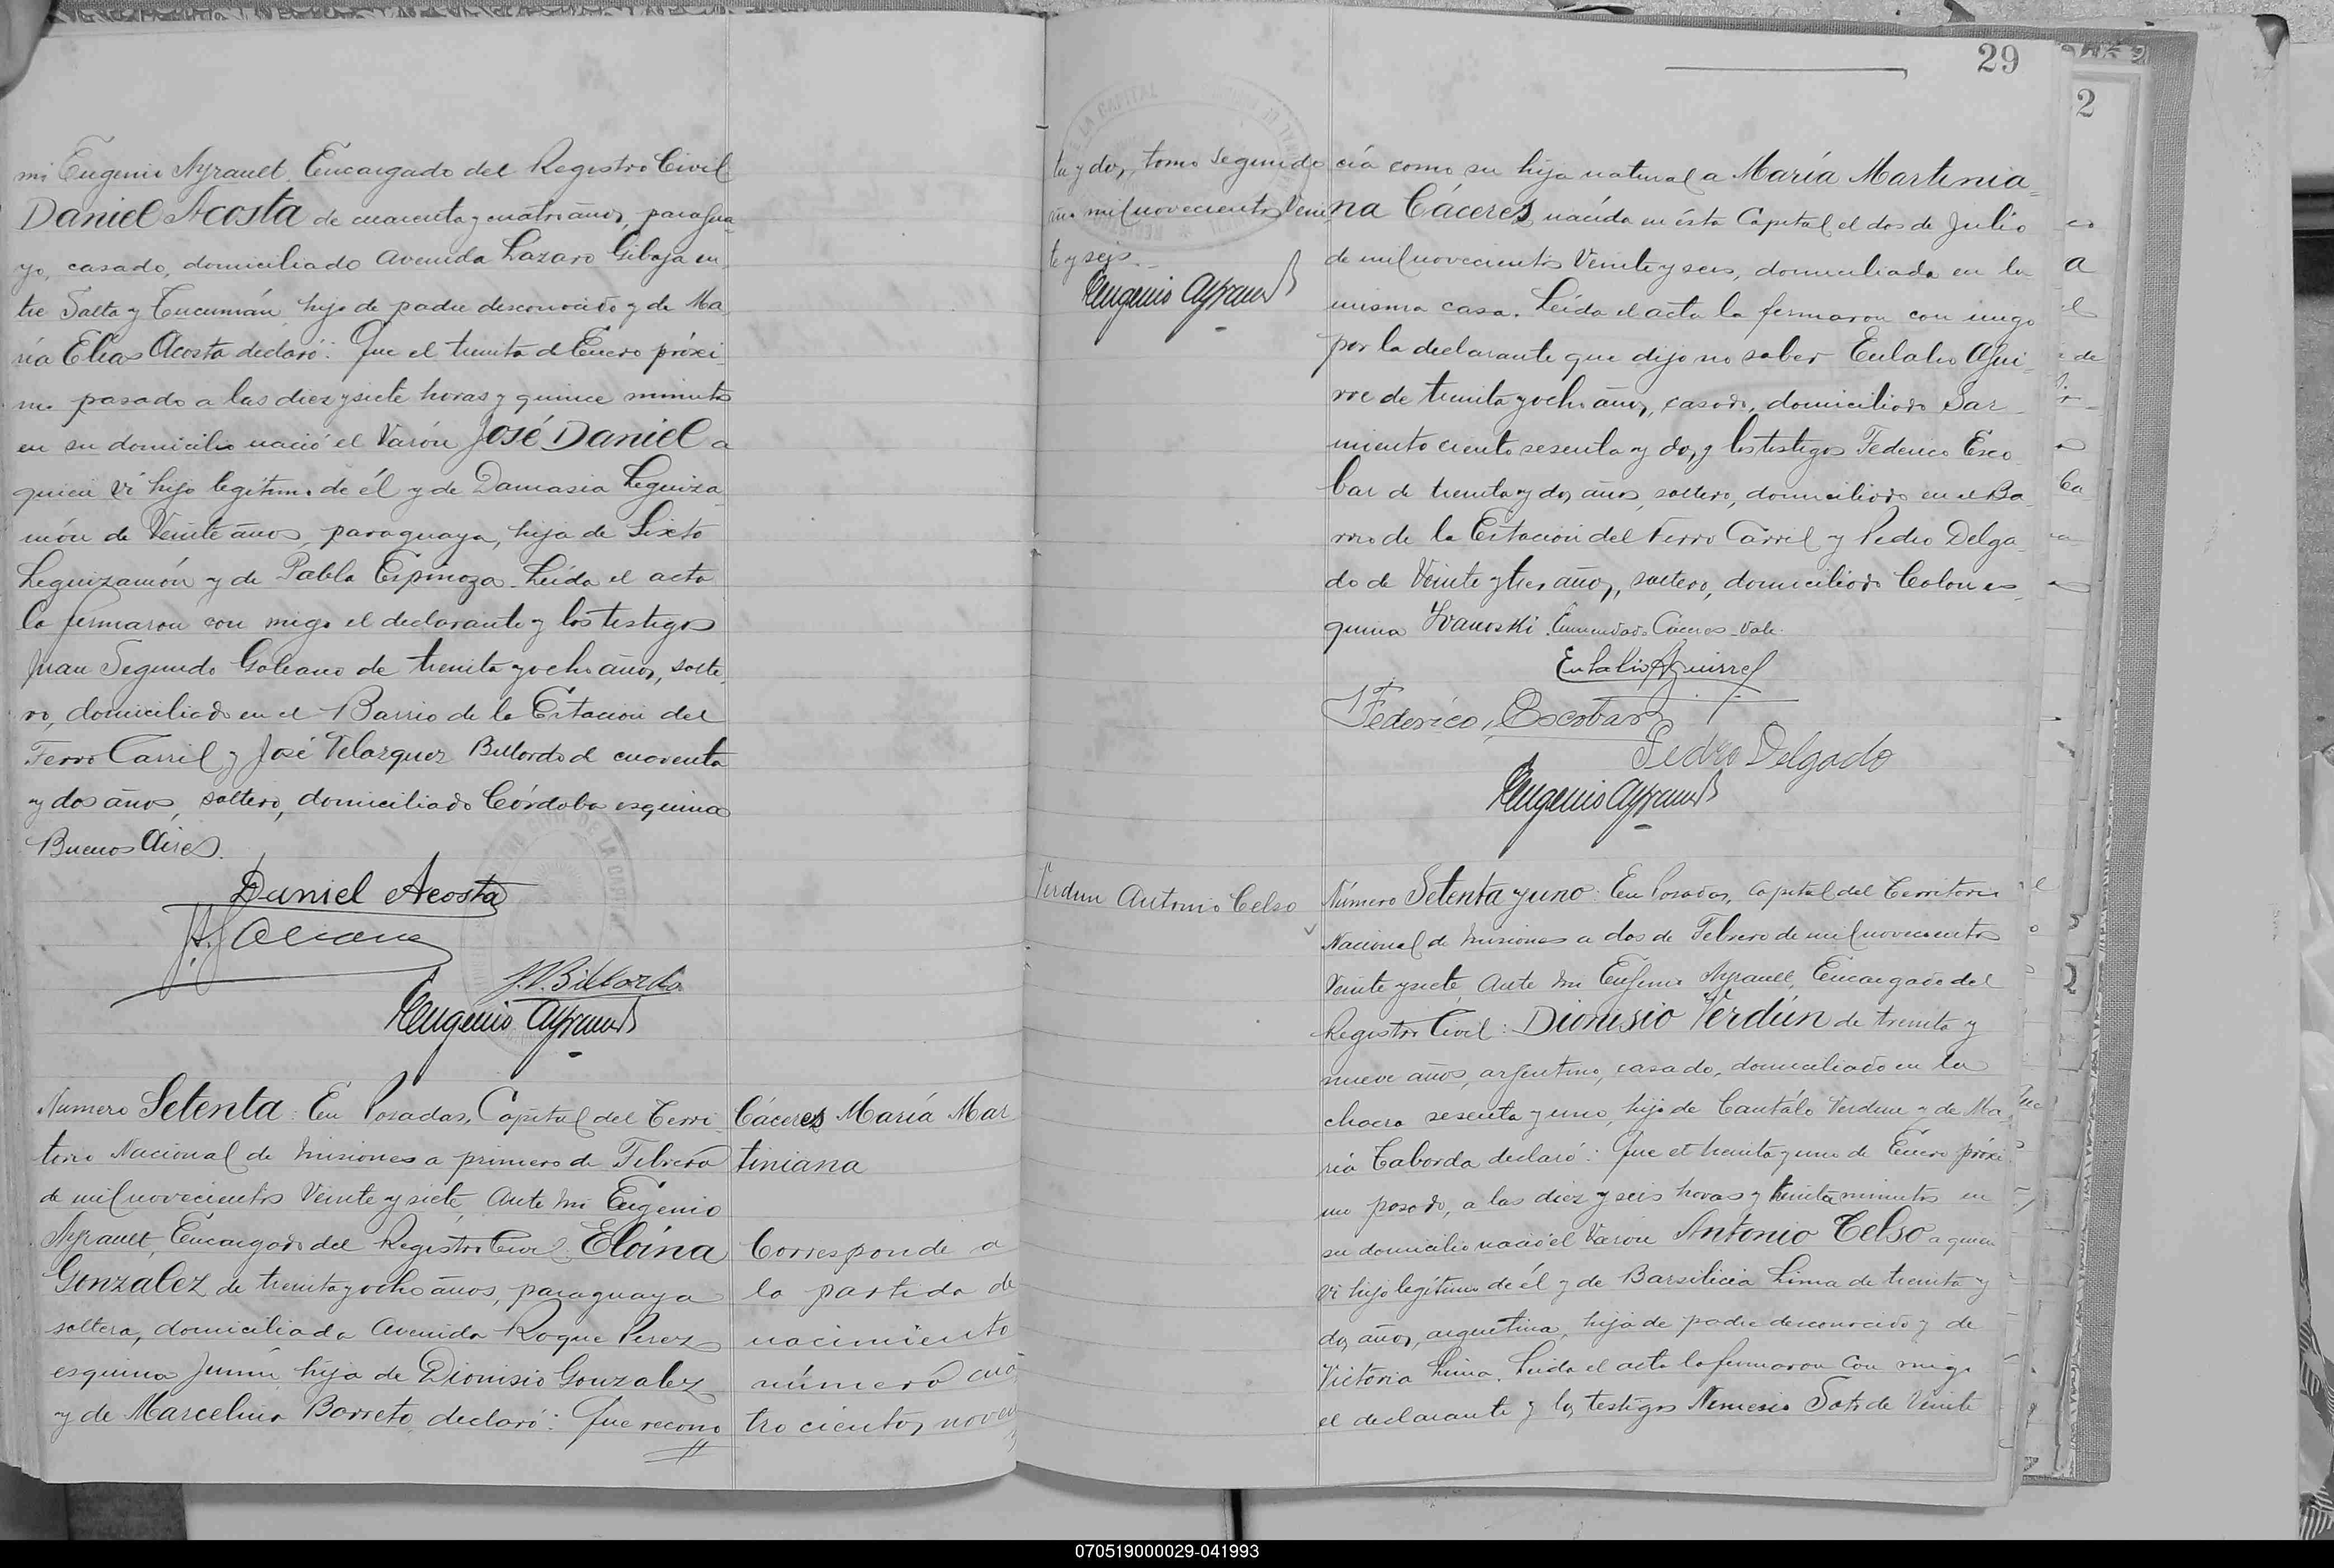 mi Eugenio Ayrault Encargado del Registro Civil
Daniel Acosta de cuarenta y cuatro años, paragua-
yo, casado, domiciliado Avenida Lazaro Gibaja en-
tre Salta y Tucumán hijo de padre desconocido y de Ma
ría Elias Acosta declaró: Que el treinta de Enero próxi-
mo pasado a las diez y siete horas y quince minutos
en su domicilio nació el varón José Daniel a
quien vi hijo legítimo de él y de Damasia Leguiza
món de veinte años, paraguaya, hija de Sixto
Leguizamón y de Pabla Espinoza. Leída el acta
la firmaron con migo el declarante y los testigos
Juan Segundo Galeano de treinta y ocho años, solte-
ro, domiciliado en el Barrio de la Estacion del
Ferro Carril y José Velazquez Billordo de cuarenta
y dos años, soltero, domiciliado Córdoba esquina
Buenos Aires.
Daniel Acosta
J. S. Galeano
J. V. Billordo
Eugenio Ayrault
Número Setenta: En Posadas, Capital del Terri-
torio Nacional de Misiones a primero de Febrero
de mil novecientos veinte y siete, Ante mi Eugenio
Ayrault, Encargado del Registro Civil Eloina
Gonzalez de treinta y ocho años, paraguaya
soltera, domiciliada Avenida Roque Perez
esquina Junín hija de Dionisio Gonzalez
y de Marcelina Barreto, declaró: Que recono
Cáceres María Mar
tiniana
Corresponde a
la partida de
nacimiento
número cua
tro cientos noven
29
ta y dos, tomo segundo
año mil novecientos vein
te y seis.
Eugenio Ayrault
cía como su hija natural a María Martinia-
na Cáceres nacida en ésta Capital el dos de Julio
de mil novecientos veinte y seis, domiciliada en la
misma casa. Leída el acta la firmaron con migo
por la declarante que dijo no saber Eulalio Agui-
rre de treinta y ocho años, casado, domiciliado Sar-
miento ciento sesenta y dos, y los testigos Federico Esco
bar de treinta y dos años, soltero, domiciliado en el Ba-
rrio de la Estacion del Ferro Carril y Pedro Delga-
do de veinte y tres años, soltero, domiciliado Colon es-
quina Ivanoski. Enmendado Cáceres. Vale.
Eulalio Aguirre
Federico Escobar
Pedro Delgado
Eugenio Ayrault
Verdun Antonio Celso
Número Setenta y uno: En Posadas, Capital del Territorio
Nacional de Misiones a dos de Febrero de mil novecientos
veinte y siete, Ante mi Eugenio Ayrault, Encargado del
Registro Civil: Dionisio Verdún de treinta y
nueve años, argentino, casado, domiciliado en la
chacra sesenta y uno, hijo de Cantálo Verdun y de Ma-
ría Taborda declaró: Que el treinta y uno de Enero próxi-
mo pasado, a las diez y seis horas y treinta minutos en
su domicilio nació el varon Antonio Celso a quien
vi hijo legítimo de él y de Barsilicia Lima de treinta y
dos años, argentina, hija de padre desconocido y de
Victoria Lima. Leída el acta la firmaron con migo
el declarante y los testigos Nemesio Soto de veinte
2
070519000029-041993